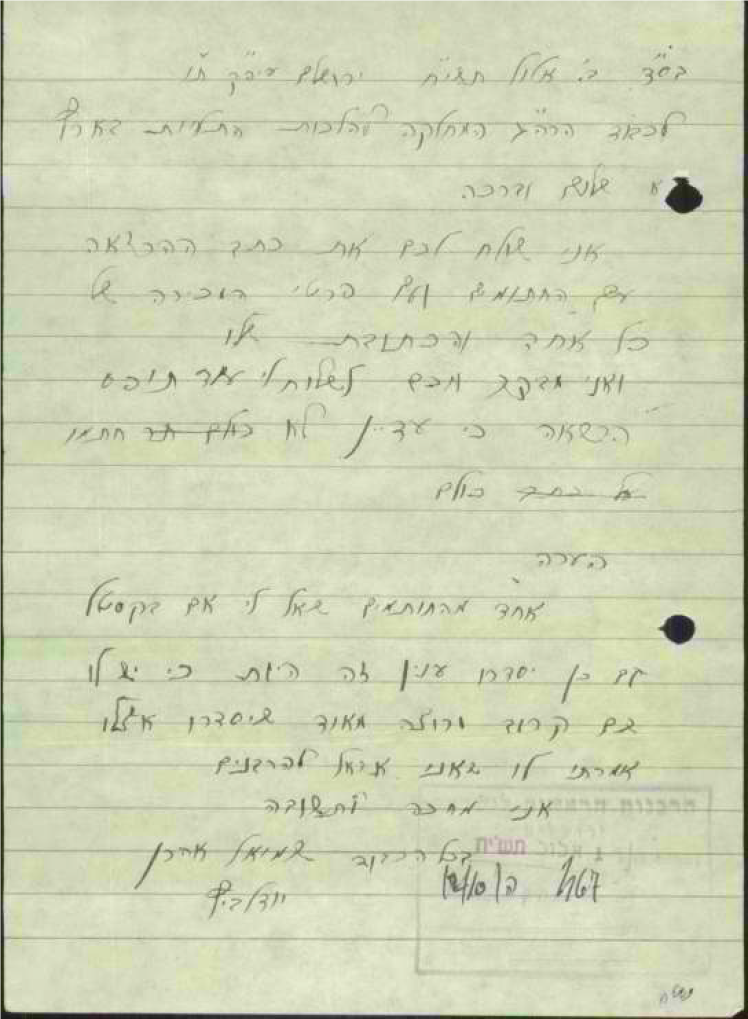 בס"ד ב' אלול תשי"ח ירושלים עיה"ק ת"ו
לכבוד הרה"ג המחלקה להלכות התלויות בארץ
שלום וברכה
אני שולח לכם את כתב ההרשאה
עם החתומים ועם פרטי המכירה של
כל אחד והכתובת שלו
ואני מבקש מכם לשלוח לי עוד תופס
הרשאה כי עדיין לא כולם חתמו
על כתב כולם
הערה
אחד מהחותמים שאל לי אם בקסטל
גם כן יסדרו ענין זה היות כי יש לו
שם קרוב ורוצה מאוד שיסדרו אצלו
אמרתי לו שאני אשאל להרבנים
אני מחכה לתשובה
בכל הכבוד שמואל אהרן
יודלביץ
אלול תשי"ח